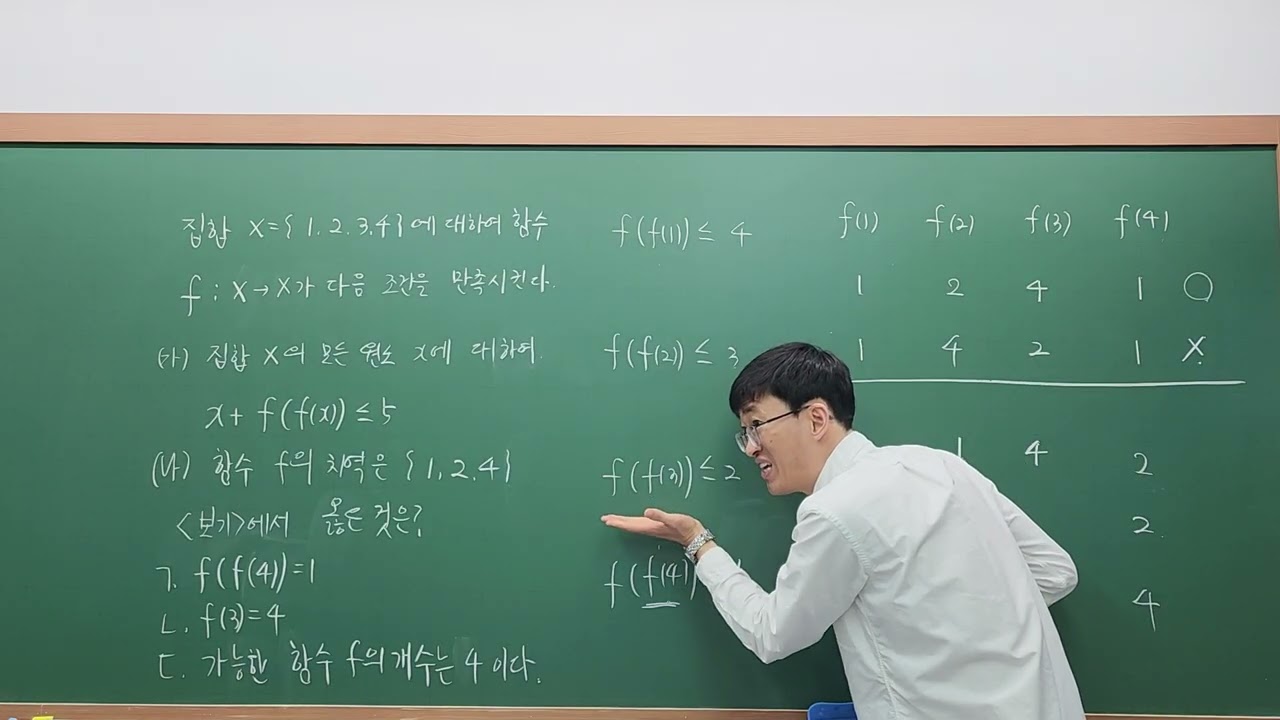 집합 X={ 1, 2, 3, 4 }에 대하여 함수
f : X → X가 다음 조건을 만족시킨다.
(가) 집합 X의 모든 원소 x에 대하여
x + f(f(x)) ≤ 5
(나) 함수 f의 치역은 { 1, 2, 4 }
<보기>에서 옳은 것은?
ㄱ. f(f(4))=1
ㄴ. f(3)=4
ㄷ. 가능한 함수 f의 개수는 4 이다.
f(f(1)) ≤ 4
f(f(2)) ≤ 3
f(f(3)) ≤ 2
f(f(4))
f(1) f(2) f(3) f(4)
1 2 4 1 ○
1 4 2 1 X
1 4 2
2
4